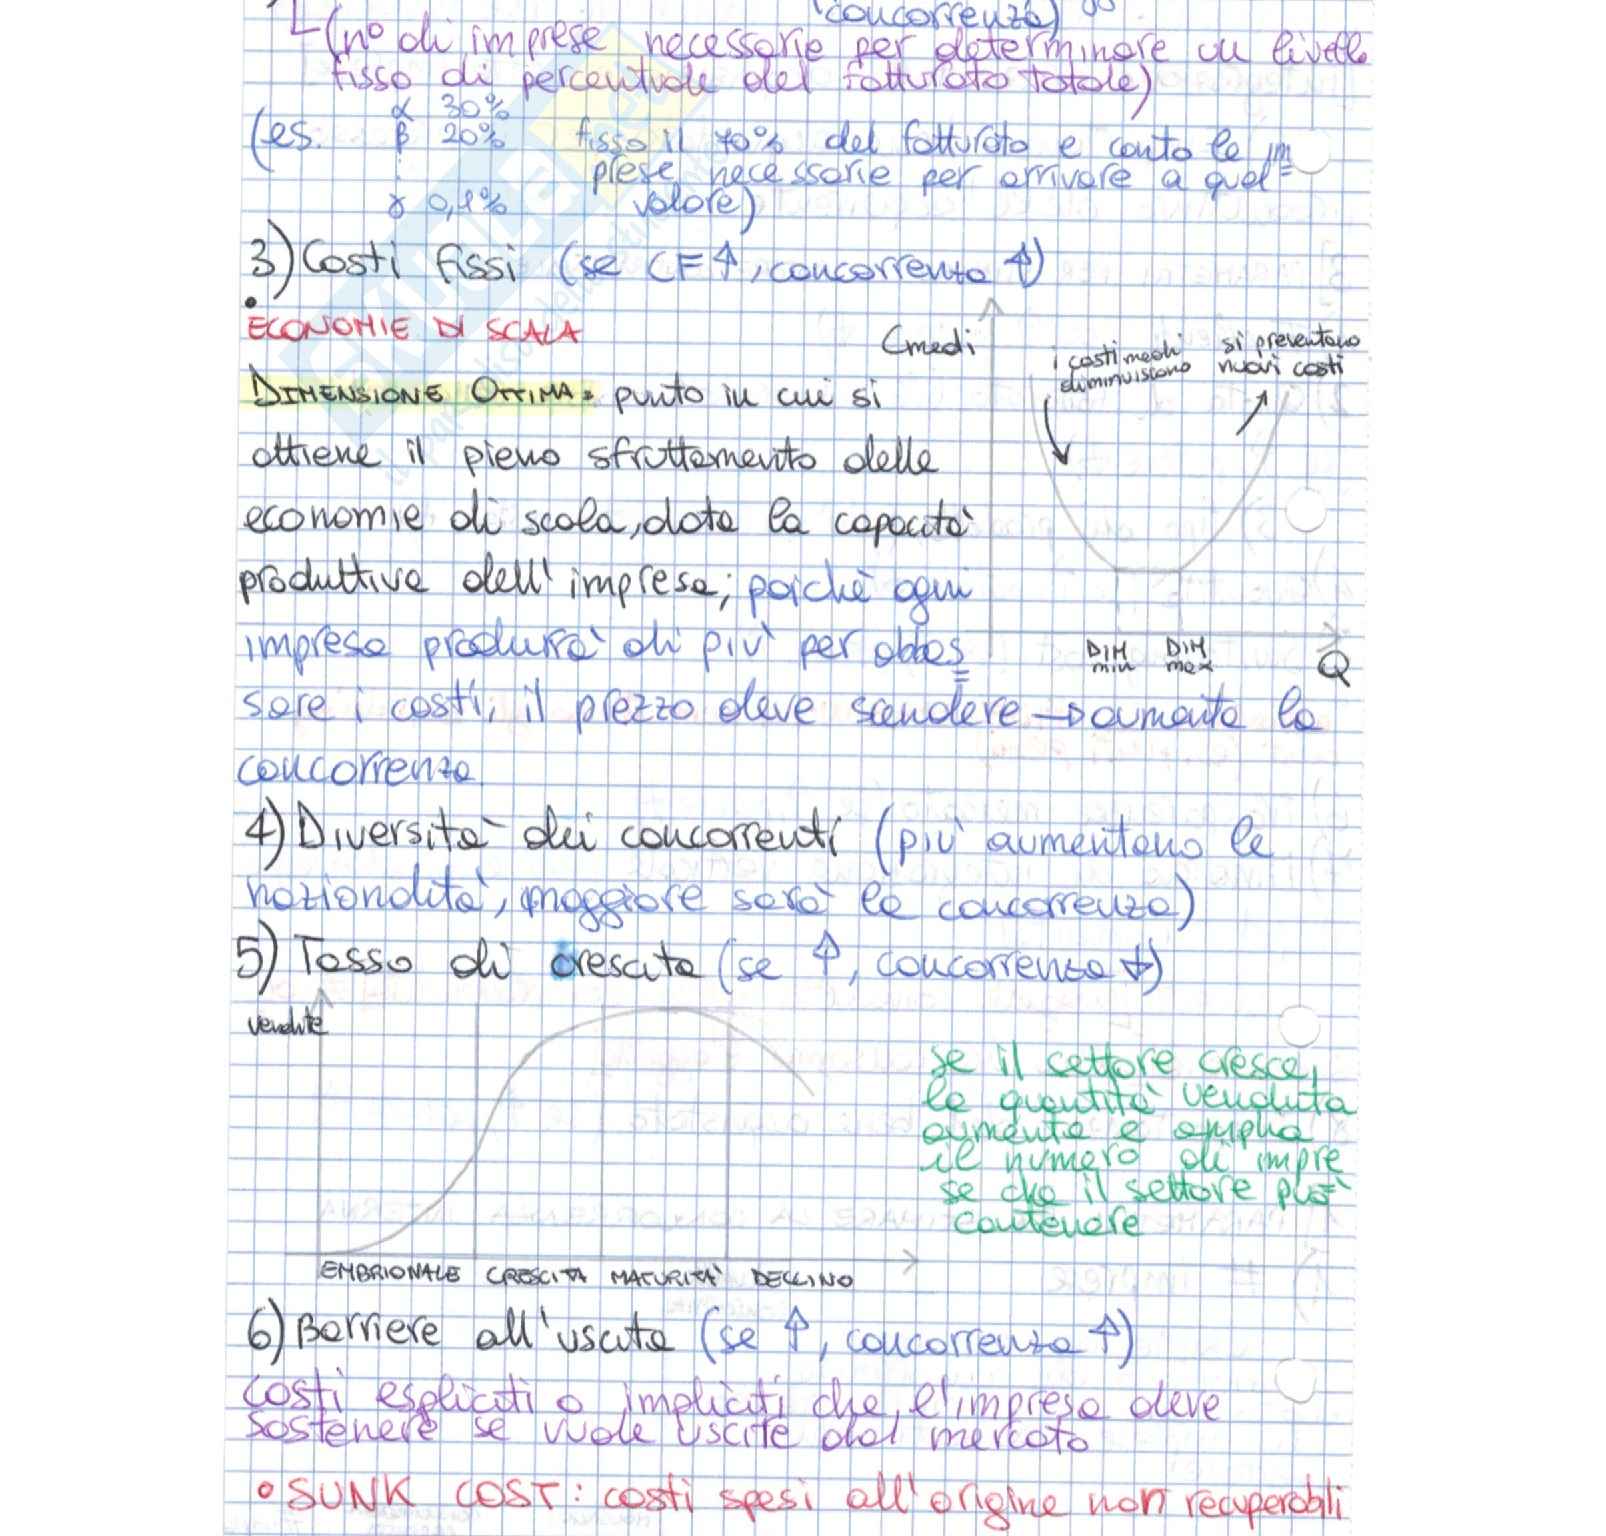 concorrenza)
(n° di imprese necessarie per determinare un livello
fisso di percentuale del fatturato totale)
(es. α 30%
β 20% fisso il 70% del fatturato e conto le im=
prese necessarie per arrivare a quel
γ 0,1% valore)
3) Costi fissi (se CF↑, concorrenza ↑)
• ECONOMIE DI SCALA
Cmedi
i costi medi diminuiscono
si presentano nuovi costi
DIMENSIONE OTTIMA = punto in cui si
ottiene il pieno sfruttamento delle
economie di scala, data la capacità
produttiva dell'impresa; poichè ogni
impresa produrrà di più per abbas=
DIM min DIM max Q
sare i costi, il prezzo deve scendere → aumenta la
concorrenza
4) Diversità dei concorrenti (più aumentano le
nazionalità, maggiore sarà la concorrenza)
5) Tasso di crescita (se ↑, concorrenza ↓)
vendite
se il settore cresce,
la quantità venduta
aumenta e amplia
il numero di impre
se che il settore può
contenere
EMBRIONALE CRESCITA MATURITÀ DECLINO
6) Barriere all'uscita (se ↑, concorrenza ↑)
costi espliciti o impliciti che l'impresa deve
sostenere se vuole uscire dal mercato
• SUNK COST: costi spesi all'origine non recuperabili